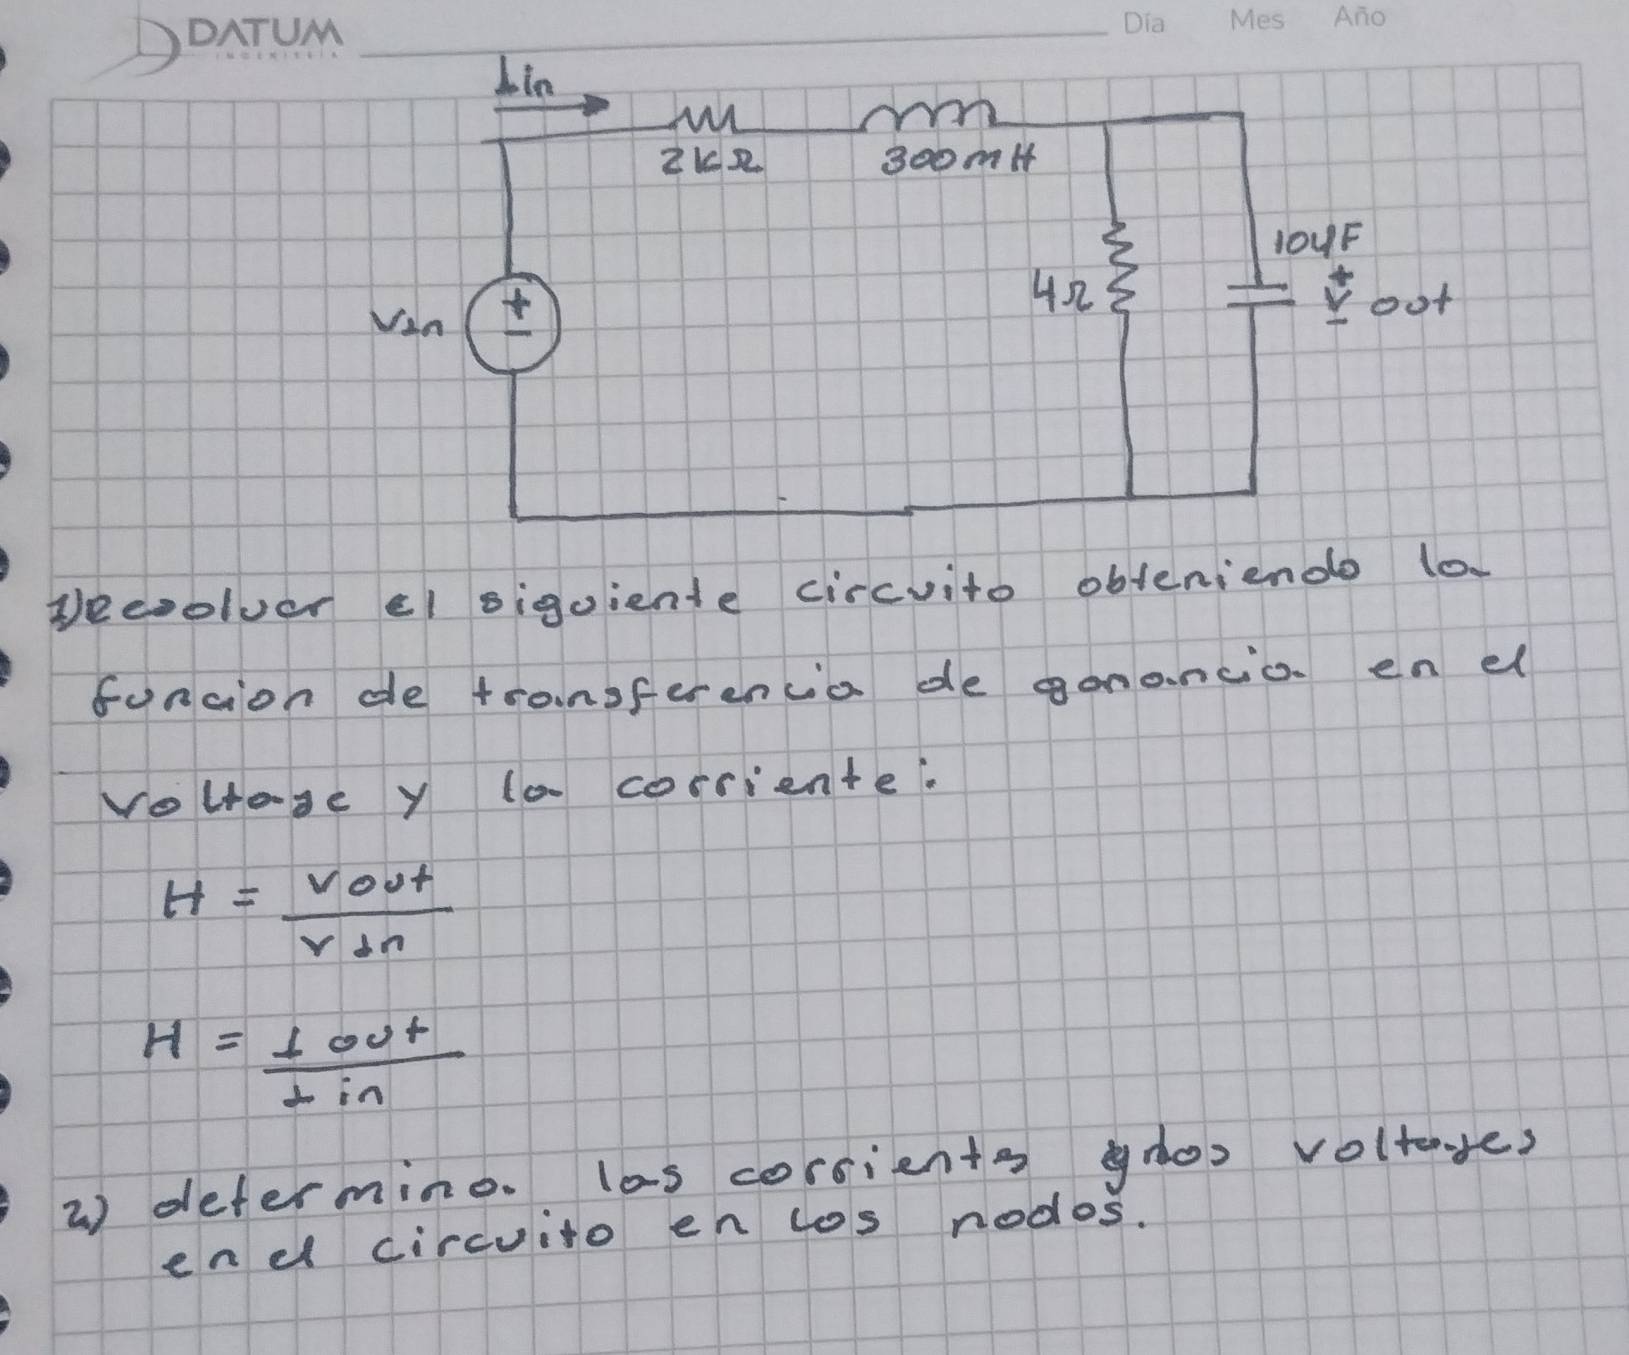 DATUM
INGENIERÍA
Día Mes Año
Iin
2KΩ
300mH
10μF
4Ω
+
V out
-
VIn
+
-
1) Resolver el siguiente circuito obteniendo la
funcion de transferencia de ganancia en el
voltage y la corriente:
H = Vout
VIn
H = I out
I in
2) determina las corrientes y los voltajes
en el circuito en los nodos.